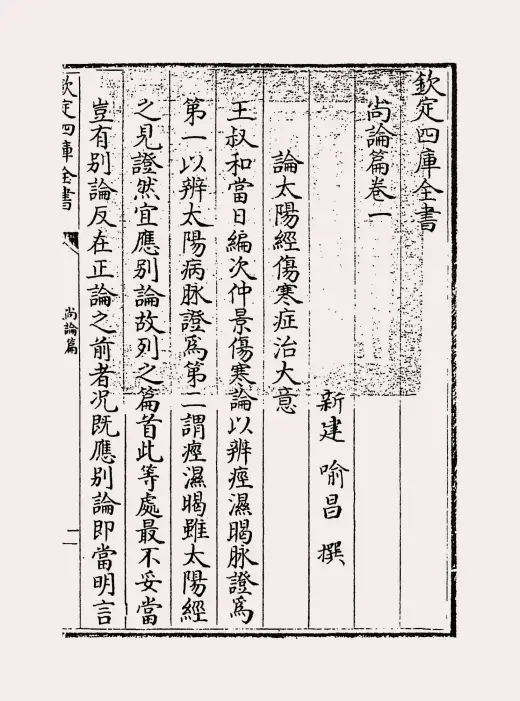 欽定四庫全書
尚論篇卷一
新建 喻昌 撰
論太陽經傷寒症治大意
王叔和當日編次仲景傷寒論以辨痙濕暍脉證為
第一以辨太陽病脉證為第二謂痙濕暍雖太陽經
之見證然宜應別論故列之篇首此等處最不妥當
豈有別論反在正論之前者况既應別論即當明言
欽定四庫全書
尚論篇
一